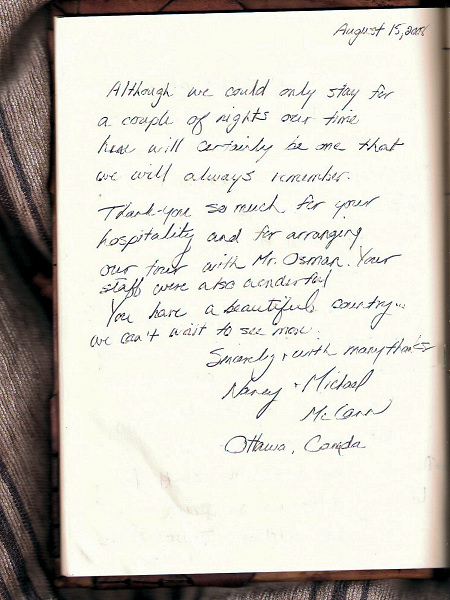 August 15, 2008
Although we could only stay for
a couple of nights our time
here will certainly be one that
we will always remember.
Thank-you so much for your
hospitality and for arranging
our tour with Mr. Osman. Your
staff were also wonderful
You have a beautiful country...
we can't wait to see more.
Sincerely + with many thanks
Nancy + Michael
McCann
Ottawa, Canada